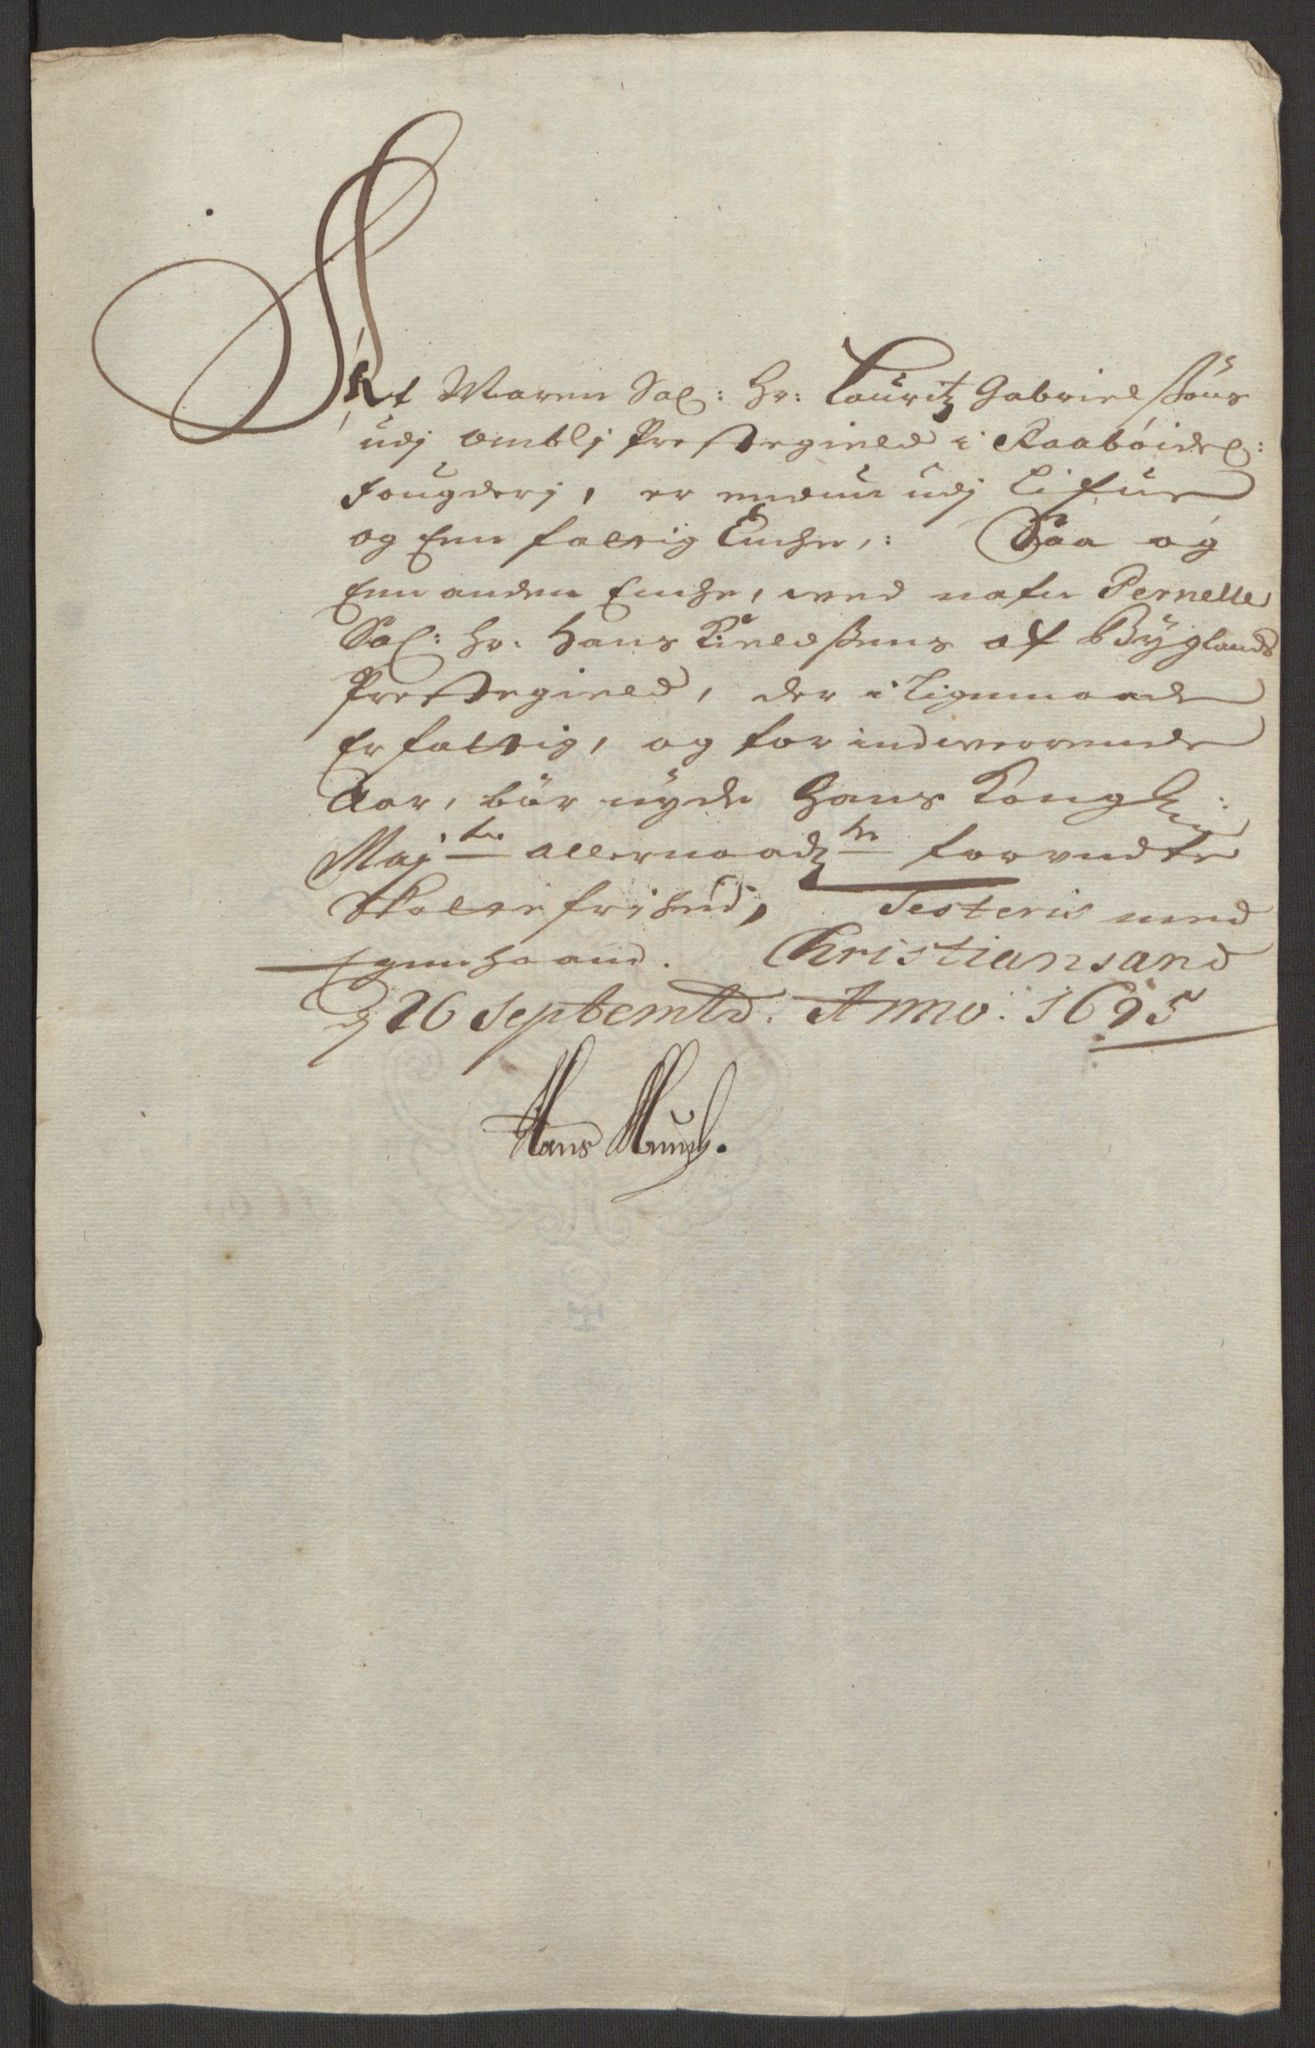 At Maren Sal: Hr: Lauritz Gabrielßøns
udj Omblj Prestegield i Raaböidel:
Fougderj, er endnu udj Lifue
og Enn fattig Enche,: Saa og
Enn anden Enche, ved nafn Pernelle
Sal: Hr. Hans Kieldßens af Byglands
Prestegield, der i ligemaade
Er fattig, og for indeverende
Aar, bör nyde Hans Kongl:
Maj:ts allernaadgste forundte
Skattefrihed, Testeris med
Egenhaand. Christiansand
d 26 Septembr: Anno: 1695
Hans Munch.